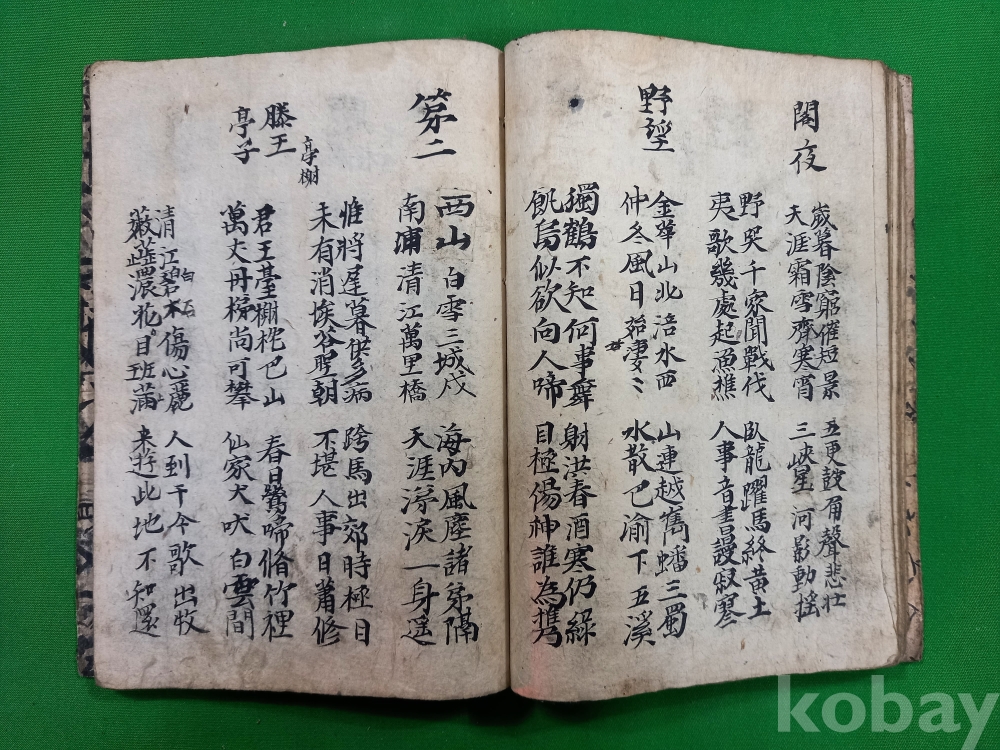 閣夜
歲暮陰窮催短景
天涯霜雪齊寒宵
五更鼓角聲悲壯
三峽星河影動搖
野哭千家聞戰伐
夷歌幾處起漁樵
臥龍躍馬終黄土
人事音書謾寂寥
野望
金華山北涪水西
仲冬風日始凄ミ
山連越嶲蟠三蜀
水散巴渝下五溪
獨鶴不知何事舞
飢烏似欲向人啼
射洪春酒寒仍綠
目極傷神誰為携
第二
西山白雪三城戍
南浦清江萬里橋
海內風塵諸弟隔
天涯涕淚一身遥
惟將遲暮供多病
未有消埃答聖朝
跨馬出郊時極目
不堪人事日蕭條
亭榭
滕王
亭子
君王臺榭枕巴山
萬丈丹梯尚可攀
春日鶯啼脩竹裡
仙家犬吠白雲間
清江碧木傷心麗
白石
嫩蘂濃花目班滿
人到于今歌出牧
来遊此地不知還
kobay